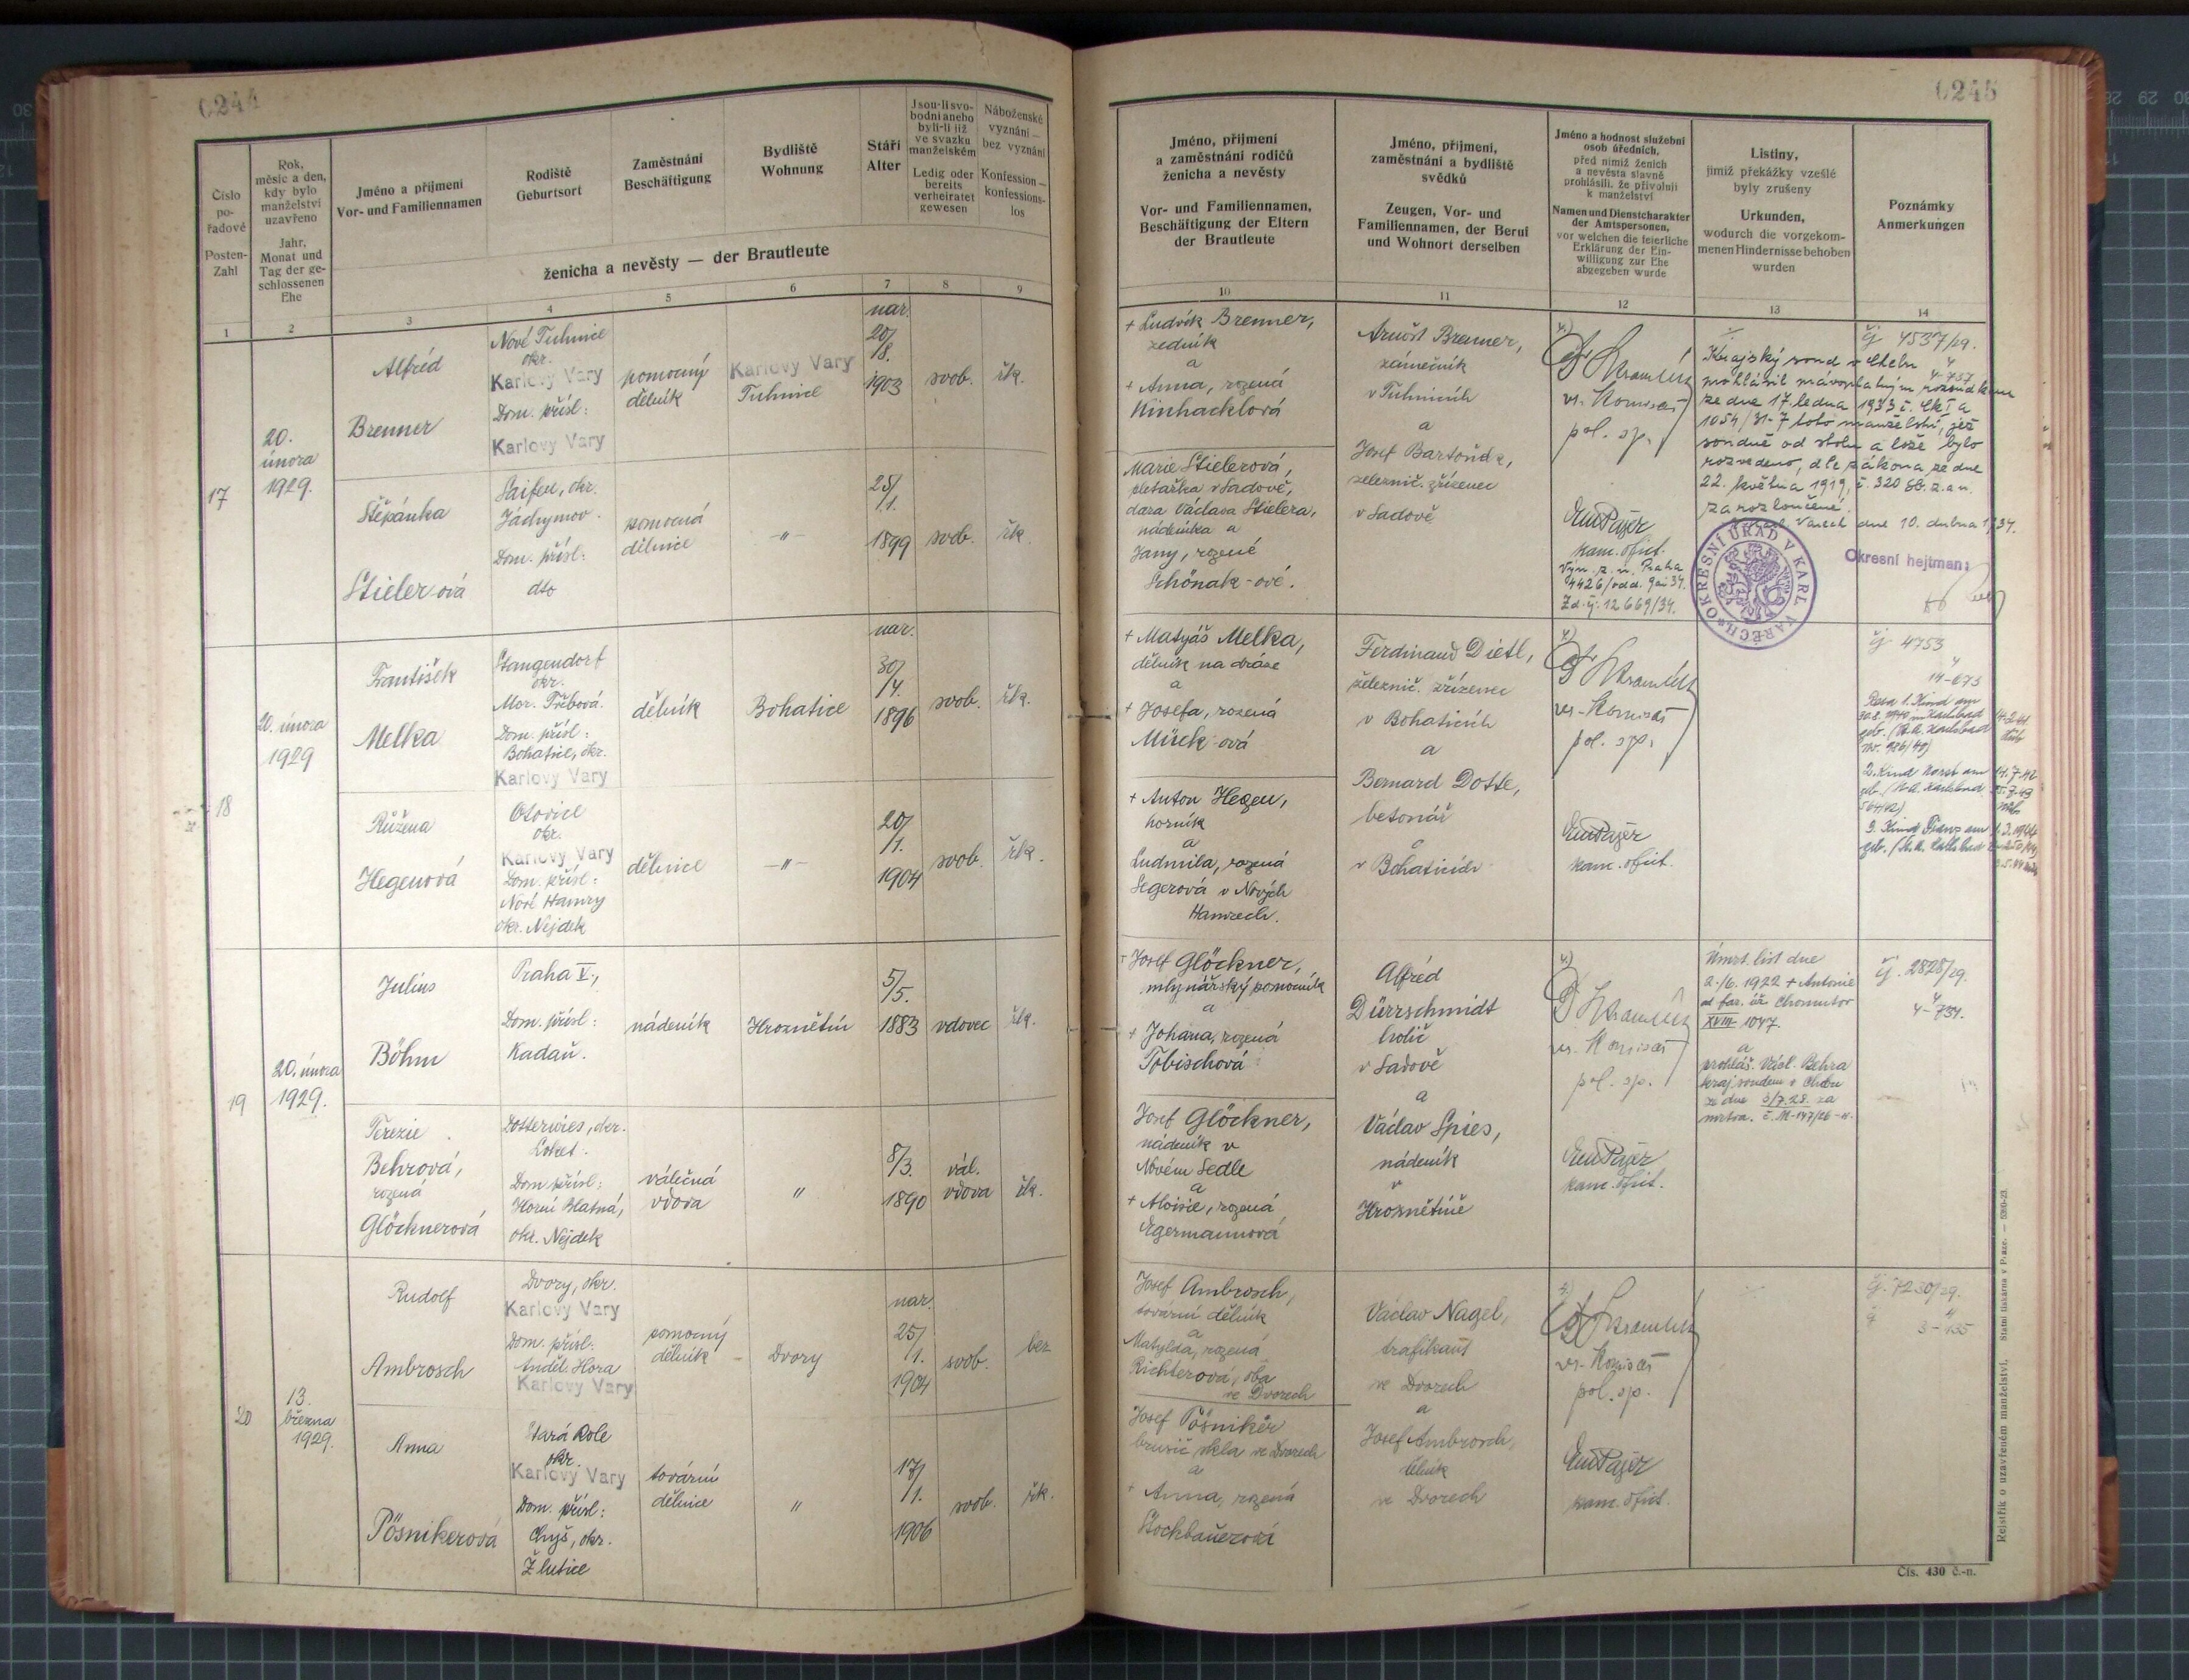 0244
Číslo
po-
řadové
Posten-
Zahl
Rok,
měsíc a den,
kdy bylo
manželství
uzavřeno
Jahr,
Monat und
Tag der ge-
schlossenen
Ehe
Jméno a přijmení
Vor- und Familiennamen
Rodiště
Geburtsort
Zaměstnání
Beschäftigung
Bydliště
Wohnung
Stáří
Alter
Jsou-li svo-
bodni anebo
byli-li již
ve svazku
manželském
Ledig oder
bereits
verheiratet
gewesen
Náboženské
vyznání —
bez vyznání
Konfession —
konfessions-
los
ženicha a nevěsty — der Brautleute
1
2
3
4
5
6
7
8
9
17
20.
února
1929.
Alfréd
Brenner
Nové Tuhnice
okr.
Karlovy Vary
Dom. přísl:
Karlovy Vary
pomocný
dělník
Karlovy Vary
Tuhnice
nar.
20/
/8.
1903
svob.
řk.
Štěpánka
Stieler-ová
Saifen, okr.
Jáchymov.
Dom. přísl:
dto
pomocná
dělnice
-"-
25/
/1.
1899
svob.
řk.
18
20. února
1929
František
Melka
Stangendorf
okr.
Mor. Třebová.
Dom. přísl:
Bohatice, okr.
Karlovy Vary
dělník
Bohatice
nar.
30/
/4.
1896
svob.
řk.
Růžena
Hegenová
Otovice
okr.
Karlovy Vary
Dom. přísl:
Nové Hamry
okr. Nejdek
dělnice
-"-
20/
/1.
1904
svob.
řk.
19
20. února
1929.
Julius
Böhm
Praha V.,
Dom. přísl:
Kadaň.
nádeník
Hroznětín
5/
/5.
1883
vdovec
řk.
Terezie
Behrová,
rozená
Glöcknerová
okr.
Loket.
Dom přísl:
Horní Blatná,
okr. Nejdek
válečná
vdova
"
8/
/3.
1890
vál.
vdova
řk.
20
13.
března
1929.
Rudolf
Ambrosch
Dvory, okr.
Karlovy Vary
Dom. přísl:
Anděl. Hora
Karlovy Vary
pomocný
dělník
Dvory
nar.
25/
/1.
1904
svob.
bez
Anna
Pösnikerová
Stará Role
okr.
Karlovy Vary
Dom. přísl:
Chyš, okr.
Žlutice
tovární
dělnice
"
17/
/1.
1906
svob.
řk.
0245
Jméno, přijmení
a zaměstnání rodičů
ženicha a nevěsty
Vor- und Familiennamen,
Beschäftigung der Eltern
der Brautleute
Jméno, přijmení,
zaměstnání a bydliště
svědků
Zeugen, Vor- und
Familiennamen, der Beruf
und Wohnort derselben
Jméno a hodnost služební
osob úředních,
před nimiž ženich
a nevěsta slavně
prohlásili, že přivolují
k manželství
Namen und Dienstcharakter
der Amtspersonen,
vor welchen die feierliche
Erklärung der Ein-
willigung zur Ehe
abgegeben wurde
Listiny,
jimiž překážky vzešlé
byly zrušeny
Urkunden,
wodurch die vorgekom-
menen Hindernisse behoben
wurden
Poznámky
Anmerkungen
10
11
12
13
14
+ Ludvík Brenner,
zedník
a
+ Anna, rozená
Ninhacklová
Arnošt Brenner,
zámečník
v Tuhnicích
a
Josef
železnič. zřízenec
v Sadově
vr. Komisař
pol. sp.
kam. ofic.
Výn. z. ú. Praha
Zd. č. 12669/34.
Krajský soud v Chebu
prohlásil právoplatným rozsudkem
ze dne 17. ledna 1933 č. Ck I a
1054/31-7 toto manželství, jež
soudně od stolu a lože bylo
rozvedeno, dle zákona ze dne
22. května 1919, č. 320 Sb. z. a n.
za rozloučené.
Varech dne 10. dubna 1934.
OKRESNÍ ÚŘAD V KARL. VARECH
Okresní hejtman:
čj 4537/29.
4-737
Marie Stielerová,
pletařka v Sadově,
dcra Václava Stielera,
nádeníka a
Jany, rozené
Schönak-ové.
+ Matyáš Melka,
dělník na dráze
a
+ Josefa, rozená
Mück-ová
Ferdinand Dietl,
železnič. zřízenec
v Bohaticích
a
Bernard Dotte,
betonář
v Bohaticích
vr. Komisař
pol. sp.
kam. ofic.
čj 4753
14-673
1. Kind am
30.8.1940 in Karlsbad
geb. (St.A. Karlsbad
2. Kind Horst am
geb. (St.A. Karlsbad
3. Kind Franz am
geb. (St.A. Karlsbad
+ Anton Hegen,
horník
a
Ludmila, rozená
Segerová v Nových
Hamrech.
+ Josef Glöckner,
mlynářský pomocník
a
+ Johana, rozená
Tobischová
Alfréd
Dürrschmidt
holič
v Sadově
a
Václav Spies,
nádeník
v
Hroznětíně
vr. Komisař
pol. sp.
kam. ofic.
Úmrt. list dne
2./6. 1922 + Antonie
od far. úř. Chomutov
XVIII 1047.
a
prohláš. Václ. Behra
kraj. soudem v Chebu
ze dne 3/7.28. za
mrtva.
čj. 2828/29.
4-734.
Josef Glöckner,
nádeník v
Novém Sedle
a
+ Aloisie, rozená
Egermannová
Josef Ambrosch,
tovární dělník
a
Matylda, rozená
Richterová, oba
ve Dvorech
Václav Nagel,
trafikant
ve Dvorech
a
Josef Ambrosch,
dělník
ve Dvorech
vr. Komisař
pol. sp.
kam. ofic.
čj. 7230/29.
3-135
Josef Pösniker
brusič skla ve Dvorech
a
+ Anna, rozená
Stockbauerová
Rejstřík o uzavřeném manželství. Státní tiskárna v Praze. — 5280-23.
Čís. 430 č.-n.